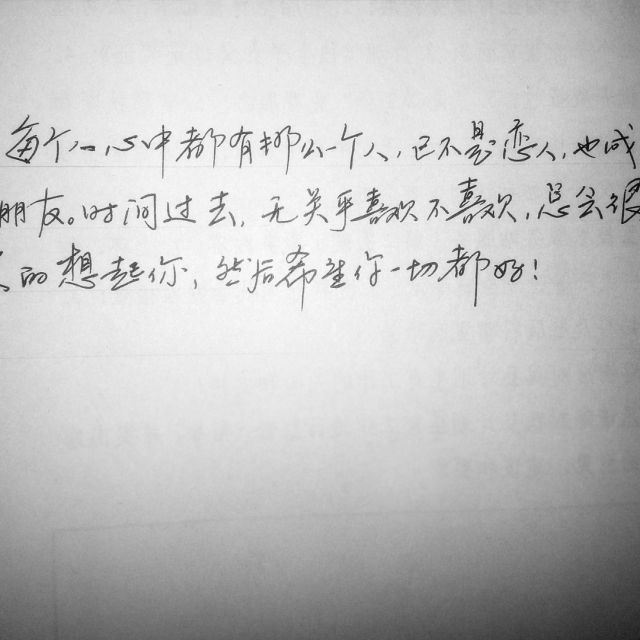 每个人心中都有那么一个人，已不是恋人，也成
朋友。时间过去，无关乎喜欢不喜欢，总会很
的想起你，然后希望你一切都好！